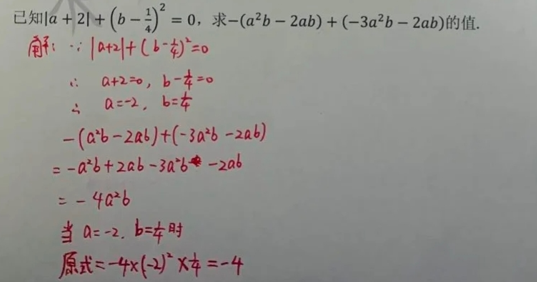 已知|a + 2| + (b − 1/4)² = 0，求−(a²b − 2ab) + (−3a²b − 2ab)的值.
解: ∵ |a+2|+(b-1/4)²=0
∴ a+2=0, b-1/4=0
∴ a=-2, b=1/4
-(a²b-2ab)+(-3a²b-2ab)
=-a²b+2ab-3a²b-2ab
=-4a²b
当 a=-2. b=1/4 时
原式=-4×(-2)²×1/4=-4